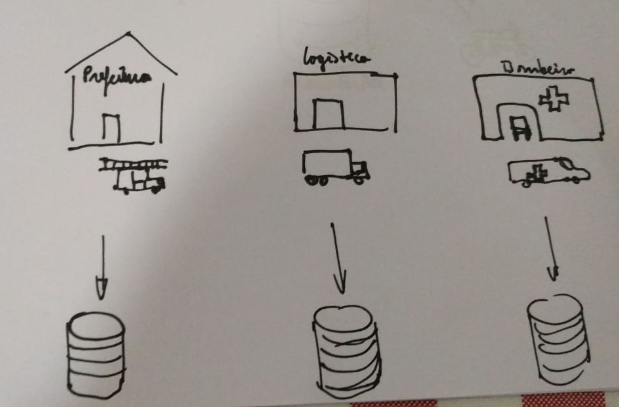 Prefeitura
Logística
Bombeiro